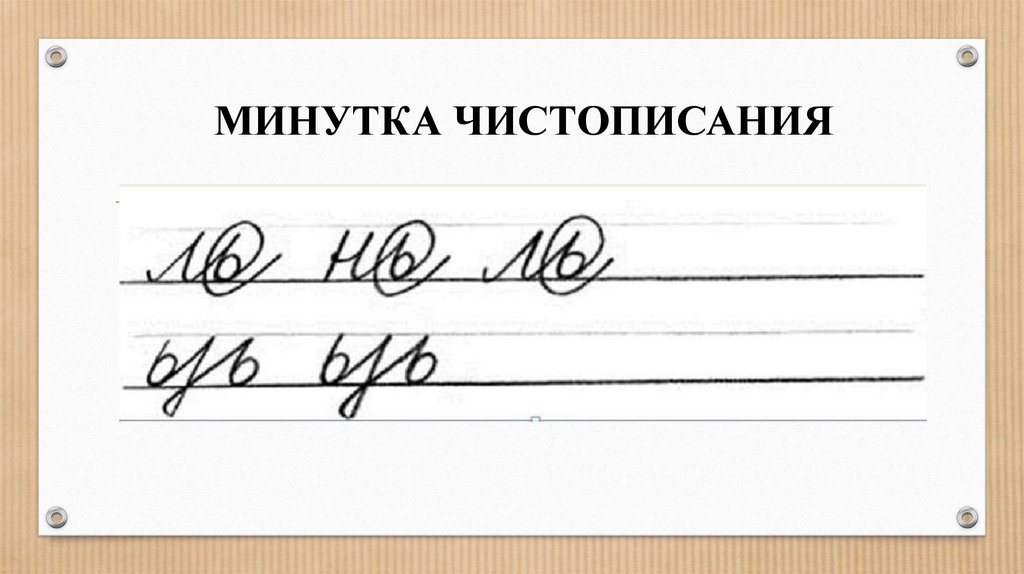 МИНУТКА ЧИСТОПИСАНИЯ
ль нь ль
ь/ь ь/ь